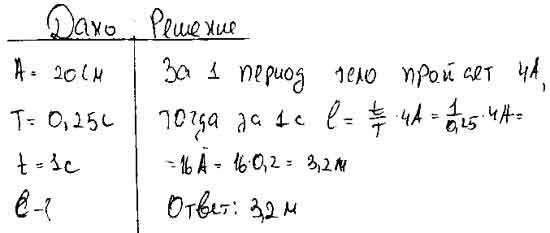 Дано Решение
A = 20см За 1 период тело пройдет 4A,
T = 0,25с тогда за 1с l = t/T · 4A = 1/0,25 · 4A =
t = 1с = 16A = 16·0,2 = 3,2м
l - ? Ответ: 3,2 м